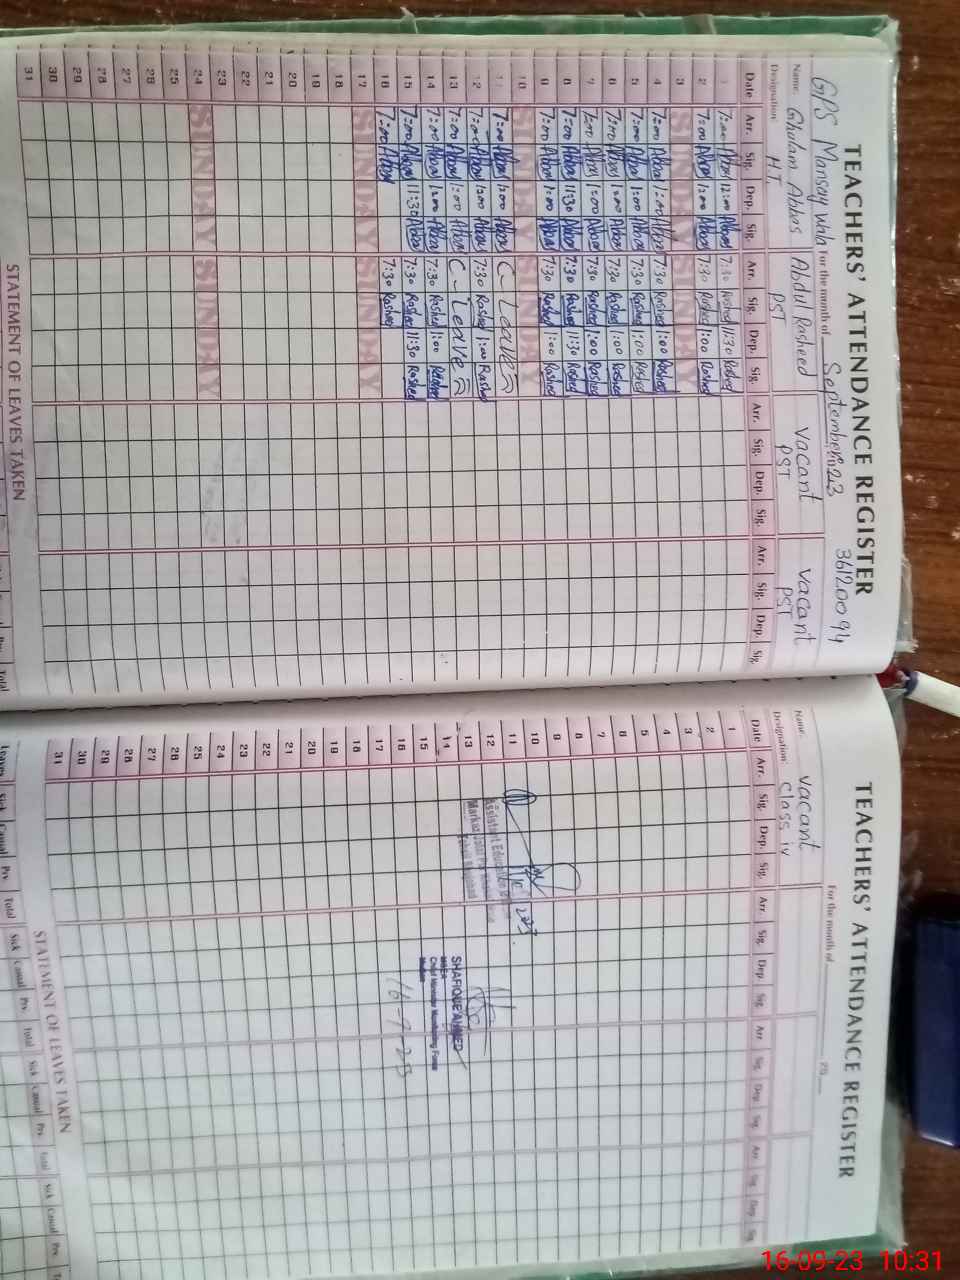 TEACHERS' ATTENDANCE REGISTER
36120094
GPS Mansay Wala For the month of September 2023
Name: Ghulam Abbas Abdul Rasheed vacant vacant
Designation: H.T. PST PST PST
Date Arr. Sig. Dep. Sig. Arr. Sig. Dep. Sig. Arr. Sig. Dep. Sig. Arr. Sig. Dep. Sig.
1 7:00 Abbas 12:00 Abbas 7:30 Rashed 11:30 Rashed
2 7:00 Abbas 12:00 Abbas 7:30 Rashed 1:00 Rashed
3 SUNDAY SUNDAY
4 7:00 Abbas 1:00 Abbas 7:30 Rashed 1:00 Rashed
5 7:00 Abbas 1:00 Abbas 7:30 Rashed 1:00 Rashed
6 7:00 Abbas 1:00 Abbas 7:30 Rashed 1:00 Rashed
7 7:00 Abbas 1:00 Abbas 7:30 Rashed 1:00 Rashed
8 7:00 Abbas 11:30 Abbas 7:30 Rashed 11:30 Rashed
9 7:00 Abbas 1:00 Abbas 7:30 Rashed 1:00 Rashed
10 SUNDAY SUNDAY
11 7:00 Abbas 1:00 Abbas C - Leave
12 7:00 Abbas 1:00 Abbas 7:30 Rashed 1:00 Rashed
13 7:00 Abbas 1:00 Abbas C - Leave
14 7:00 Abbas 1:00 Abbas 7:30 Rashed 1:00 Rashed
15 7:00 Abbas 11:30 Abbas 7:30 Rashed 11:30 Rashed
16 7:00 Abbas 7:30 Rashed
17 SUNDAY SUNDAY
18
19
20
21
22
23
24 SUNDAY SUNDAY
25
26
27
28
29
30
31
STATEMENT OF LEAVES TAKEN
TEACHERS' ATTENDANCE REGISTER
For the month of 20
Name: vacant
Designation: Class iv
Date Arr. Sig. Dep. Sig. Arr. Sig. Dep. Sig. Arr. Sig. Dep. Sig. Arr. Sig. Dep. Sig.
1
2
3
4
5
6
7
8
9
10
11
12
13
14
15
16
17
18
19
20
21
22
23
24
25
26
27
28
29
30
31
Assistant Education
Markaz
SHAFIQUE AHMED
MEA
Chief Minister Monitoring Force
16-9-23
STATEMENT OF LEAVES TAKEN
Leaves Sick Casual Prv. Total Sick Casual Prv. Total Sick Casual Prv. Total Sick Casual Prv.
16-09-23 10:31